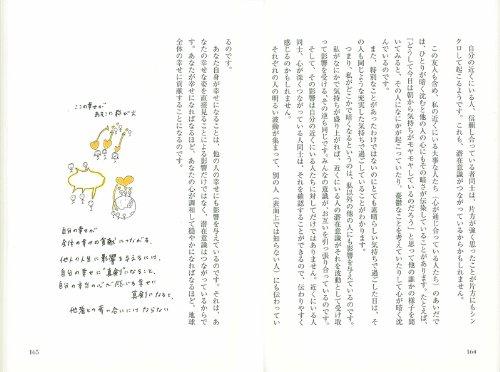 自分の近くにいる人、信頼し合っている者同士は、片方が強く思ったことが片方にもシン
クロして起こるようです。これも、潜在意識がつながっているからかもしれません。
この友人も含め、私の近くにいる大事な人たち（心が通じ合っている人たち）のあいだで
は、ひとりが暗く沈むと他の人の心にもその暗さが伝染していることがあります。たとえば、
「どうして今日は朝から気持ちがモヤモヤしているのだろう」と思って他の誰かの様子を聞
いてみると、その人になにかが起こっていたり、憂鬱なことを考えていたりして心が暗く沈
んでいるのです。
また、特別なことがあったわけではないのにとても素晴らしい気持ちで過ごした日は、そ
の人も同じような充実した気持ちで過ごしていることがわかります。
つまり、私がどこかで暗くなるというのは、私以外の他の人にも影響を与えているのです。
私がなにかで気持ちが盛り上がれば、近くにいる人の潜在意識がそれを波動として受け取
って影響を受ける。その逆も同じです。みんなの意識が、お互いを引っ張り合っているのです。
そして、その影響は自分の近くにいる人たちに対してだけではありません。近くにいる人
同士、心が深くつながっている人同士は、それを確認することができるので、伝わりやすく
感じるのかもしれません。
それぞれの人の明るい波動が集まって、別の人（表面上では知らない人）にも伝わってい
164
るのです。
あなた自身が幸せになることは、他の人の幸せにも影響を与えているのです。それは、あ
なたの幸せな姿を直接見ることによる影響だけではなく、潜在意識はつながっているからで
す。あなたが幸せになればなるほど、あなたの心が調和して穏やかになればなるほど、地球
全体の幸せに貢献することになるのです。
ここの幸せが
あそこに飛び火
自分の幸せが
全体の幸せの貢献につながる。
他の人に影響を与えるには、
自分の幸せに真剣になること。
自分の本当の心が感じる幸せに
真剣になると、
165